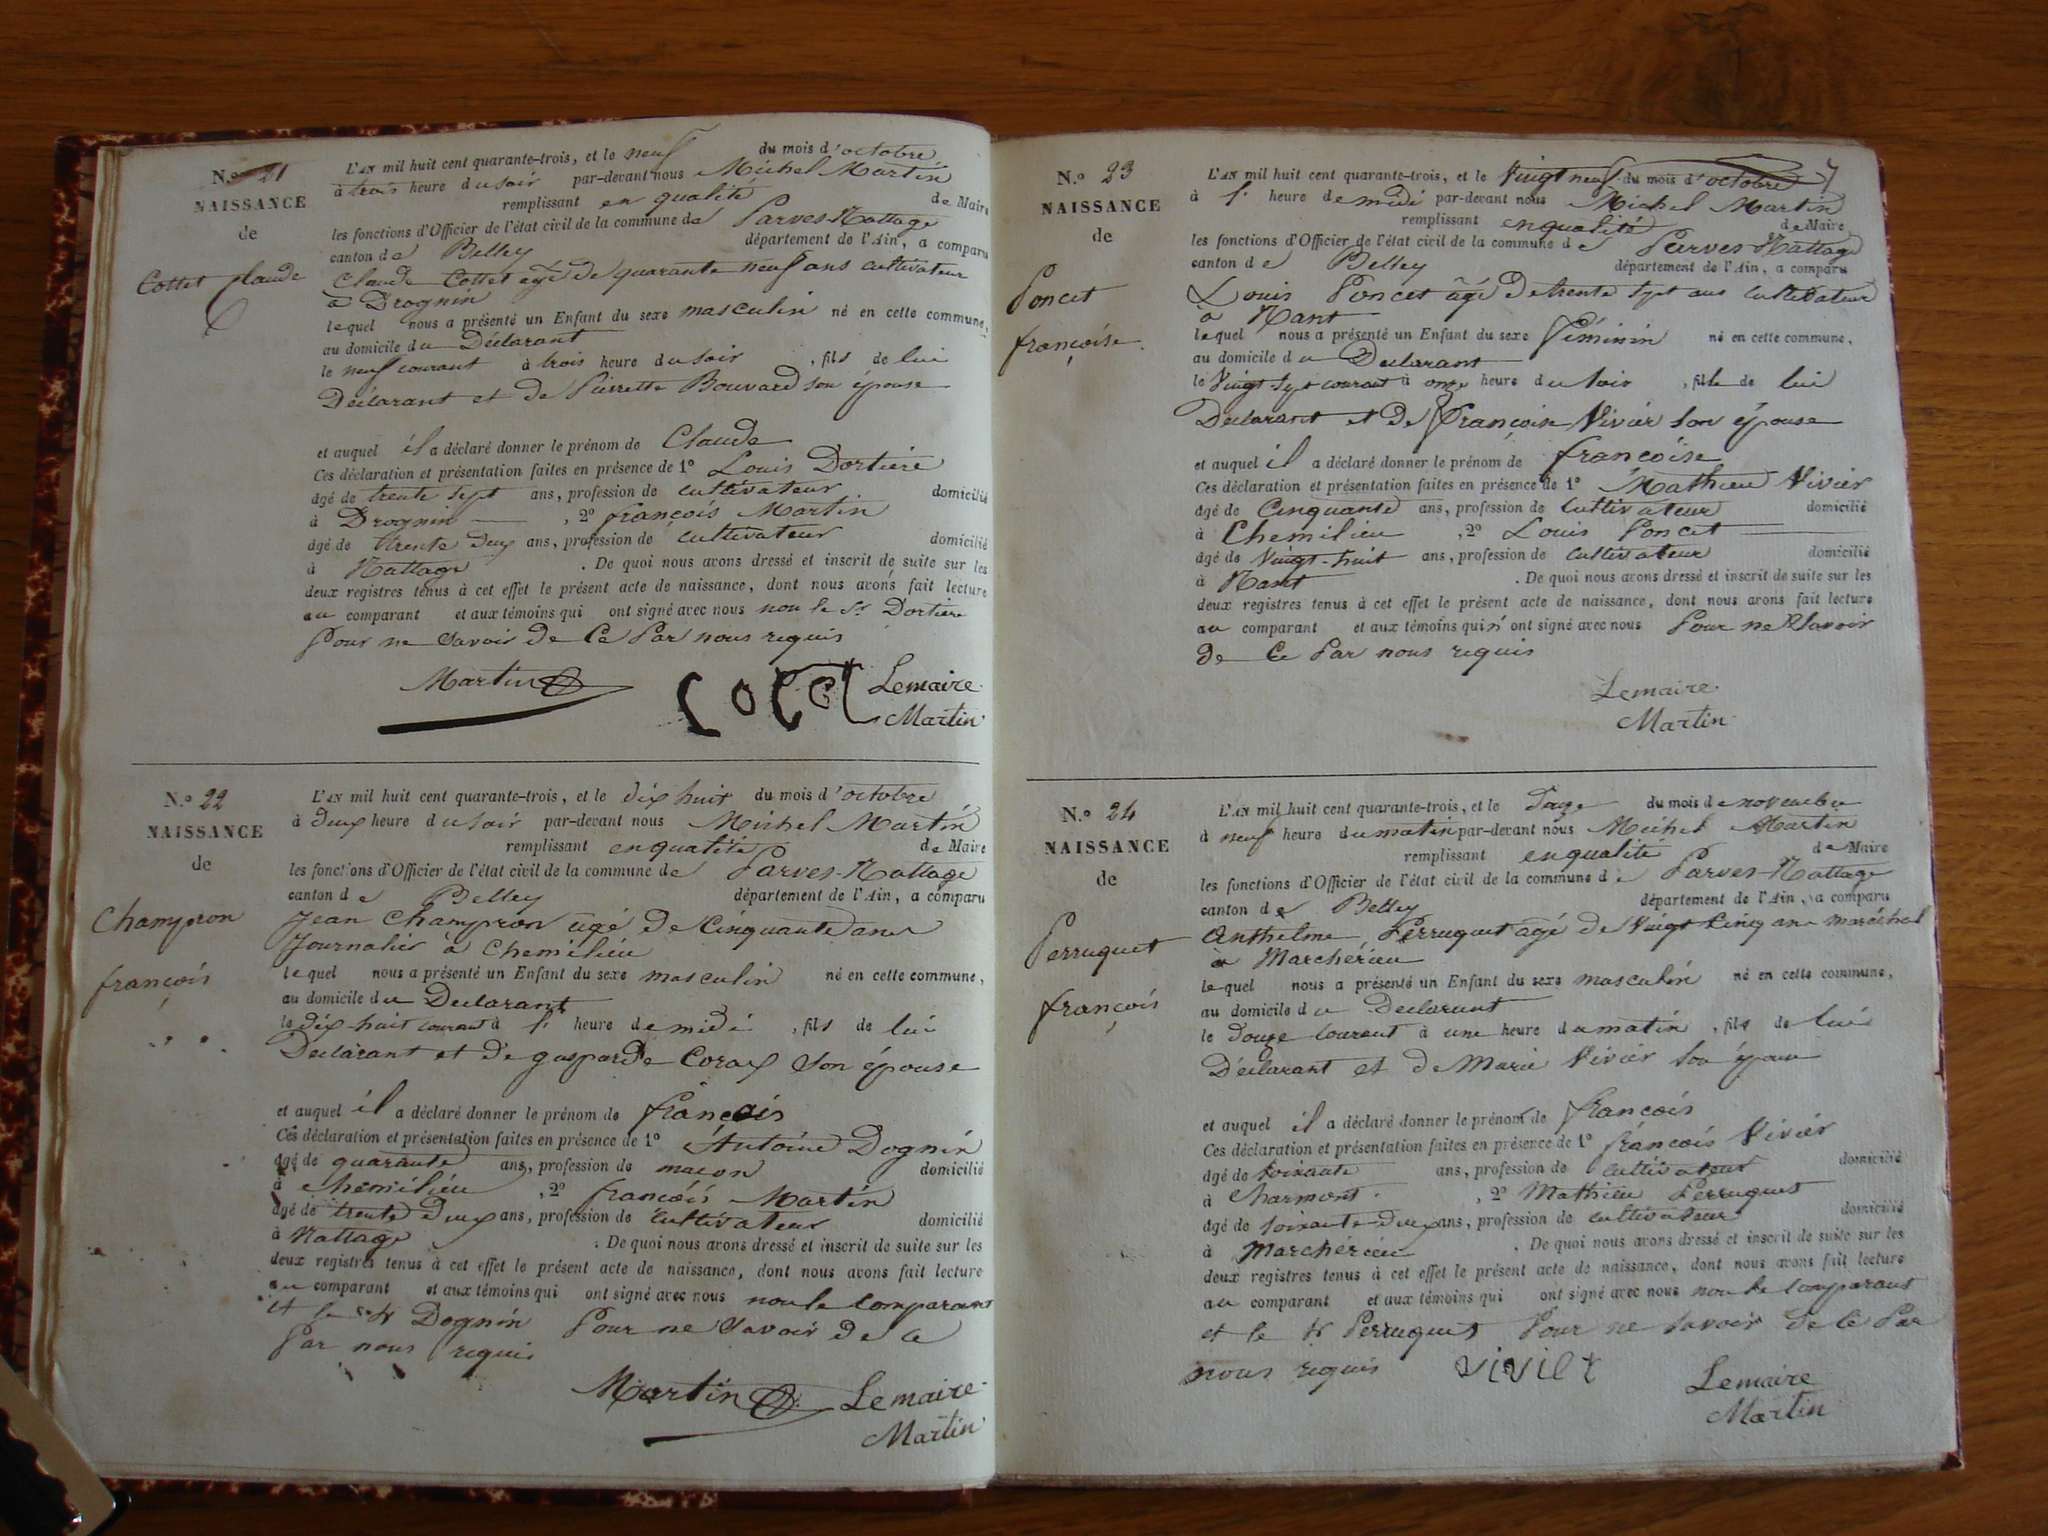 N.º 21
NAISSANCE
de
Cottet Claude
L'AN mil huit cent quarante-trois, et le neuf du mois d'octobre
à trois heure du soir par-devant nous Michel Martin
remplissant en qualité de Maire
les fonctions d'Officier de l'état civil de la commune de Parves-Nattage
canton de Belley département de l'Ain, a comparu
Claude Cottet agé de quarante neuf ans cultivateur
à Drognin
lequel nous a présenté un Enfant du sexe masculin né en cette commune,
au domicile du Déclarant
le neuf courant à trois heure du soir , fils de lui
Déclarant et de Pierrette Bouvard son épouse
et auquel il a déclaré donner le prénom de Claude
Ces déclaration et présentation faites en présence de 1º Louis Dortiere
âgé de trente sept ans, profession de cultivateur domicilié
à Drognin , 2º françois Martin
âgé de trente deux ans, profession de cultivateur domicilié
à Nattage . De quoi nous avons dressé et inscrit de suite sur les
deux registres tenus à cet effet le présent acte de naissance, dont nous avons fait lecture
au comparant et aux témoins qui ont signé avec nous non le Sr Dortiere
Pour ne savoir de Ce Par nous requis
Martin Cotet Lemaire
Martin
N.º 22
NAISSANCE
de
Champron
françois
L'AN mil huit cent quarante-trois, et le dix huit du mois d'octobre
à deux heure du soir par-devant nous Michel Martin
remplissant en qualité de Maire
les fonctions d'Officier de l'état civil de la commune de Parves-Nattage
canton de Belley département de l'Ain, a comparu
Jean Champron agé de Cinquante ans
Journalier à Chemilieu
lequel nous a présenté un Enfant du sexe masculin né en cette commune,
au domicile du Declarant
le dix-huit courant à 1. heure de midi , fils de lui
Declarant et de gasparde Corax Son épouse
et auquel il a déclaré donner le prénom de françois
Ces déclaration et présentation faites en présence de 1º Antoine Dognin
âgé de quarante ans, profession de maçon domicilié
à chemilieu , 2º françois Martin
âgé de trente deux ans, profession de cultivateur domicilié
à Nattage . De quoi nous avons dressé et inscrit de suite sur les
deux registres tenus à cet effet le présent acte de naissance, dont nous avons fait lecture
au comparant et aux témoins qui ont signé avec nous non le Comparant
et le Sr Dognin Pour ne Savoir de Ce
Par nous requis
Martin Lemaire
Martin
N.º 23
NAISSANCE
de
Poncet
françoise
L'AN mil huit cent quarante-trois, et le Vingt neuf du mois d'octobre
à 1. heure de midi par-devant nous Michel Martin
remplissant en qualité de Maire
les fonctions d'Officier de l'état civil de la commune de Parves-Nattage
canton de Belley département de l'Ain, a comparu
Louis Poncet âgé de trente sept ans cultivateur
à Nant
lequel nous a présenté un Enfant du sexe Féminin né en cette commune,
au domicile du Declarant
le Vingt-sept courant à onze heure du soir , fille de lui
Declarant et De françoise Vivier son épouse
et auquel il a déclaré donner le prénom de françoise
Ces déclaration et présentation faites en présence de 1º Mathieu Vivier
âgé de Cinquante ans, profession de Cultivateur domicilié
à Chemilieu , 2º Louis Poncet
âgé de Vingt-huit ans, profession de Cultivateur domicilié
à Nant . De quoi nous avons dressé et inscrit de suite sur les
deux registres tenus à cet effet le présent acte de naissance, dont nous avons fait lecture
au comparant et aux témoins qui n'ont signé avec nous Pour ne Savoir
de Ce Par nous requis
Lemaire
Martin
N.º 24
NAISSANCE
de
Perruquet
françois
L'AN mil huit cent quarante-trois, et le douze du mois de novembre
à neuf heure du matin par-devant nous Michel Martin
remplissant en qualité de Maire
les fonctions d'Officier de l'état civil de la commune de Parves-Nattage
canton de Belley département de l'Ain, a comparu
Anthelme Perruquet agé de Vingt Cinq ans maréchal
à Marcherieu
lequel nous a présenté un Enfant du sexe masculin né en cette commune,
au domicile du Declarant
le douze Courant à une heure du matin , fils de lui
Déclarant et de Marie Vivier son épouse
et auquel il a déclaré donner le prénom de françois
Ces déclaration et présentation faites en présence de 1º françois Vivier
âgé de soixante ans, profession de cultivateur domicilié
à Charmont. , 2º Mathieu Perruquet
âgé de soixante-deux ans, profession de cultivateur domicilié
à Marchérieu . De quoi nous avons dressé et inscrit de suite sur les
deux registres tenus à cet effet le présent acte de naissance, dont nous avons fait lecture
au comparant et aux témoins qui ont signé avec nous non le Comparant
et le Sr Perruquet Pour ne savoir de Ce Par
nous requis vivier Lemaire
Martin